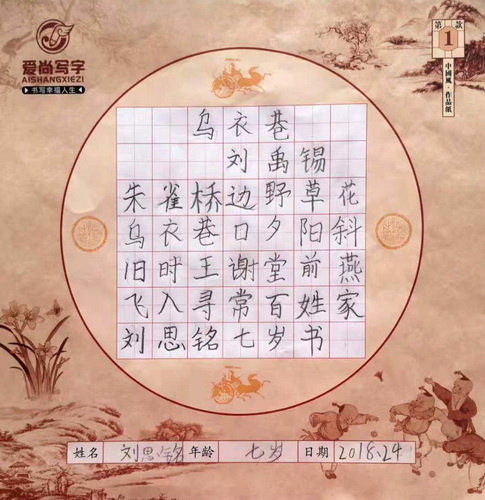 爱尚写字
AISHANGXIEZI
书写幸福人生
第1款
中國風·作品紙
乌衣巷
刘禹锡
朱雀桥边野草花
乌衣巷口夕阳斜
旧时王谢堂前燕
飞入寻常百姓家
刘思铭七岁书
姓名 刘思铭 年龄 七岁 日期 2018.24